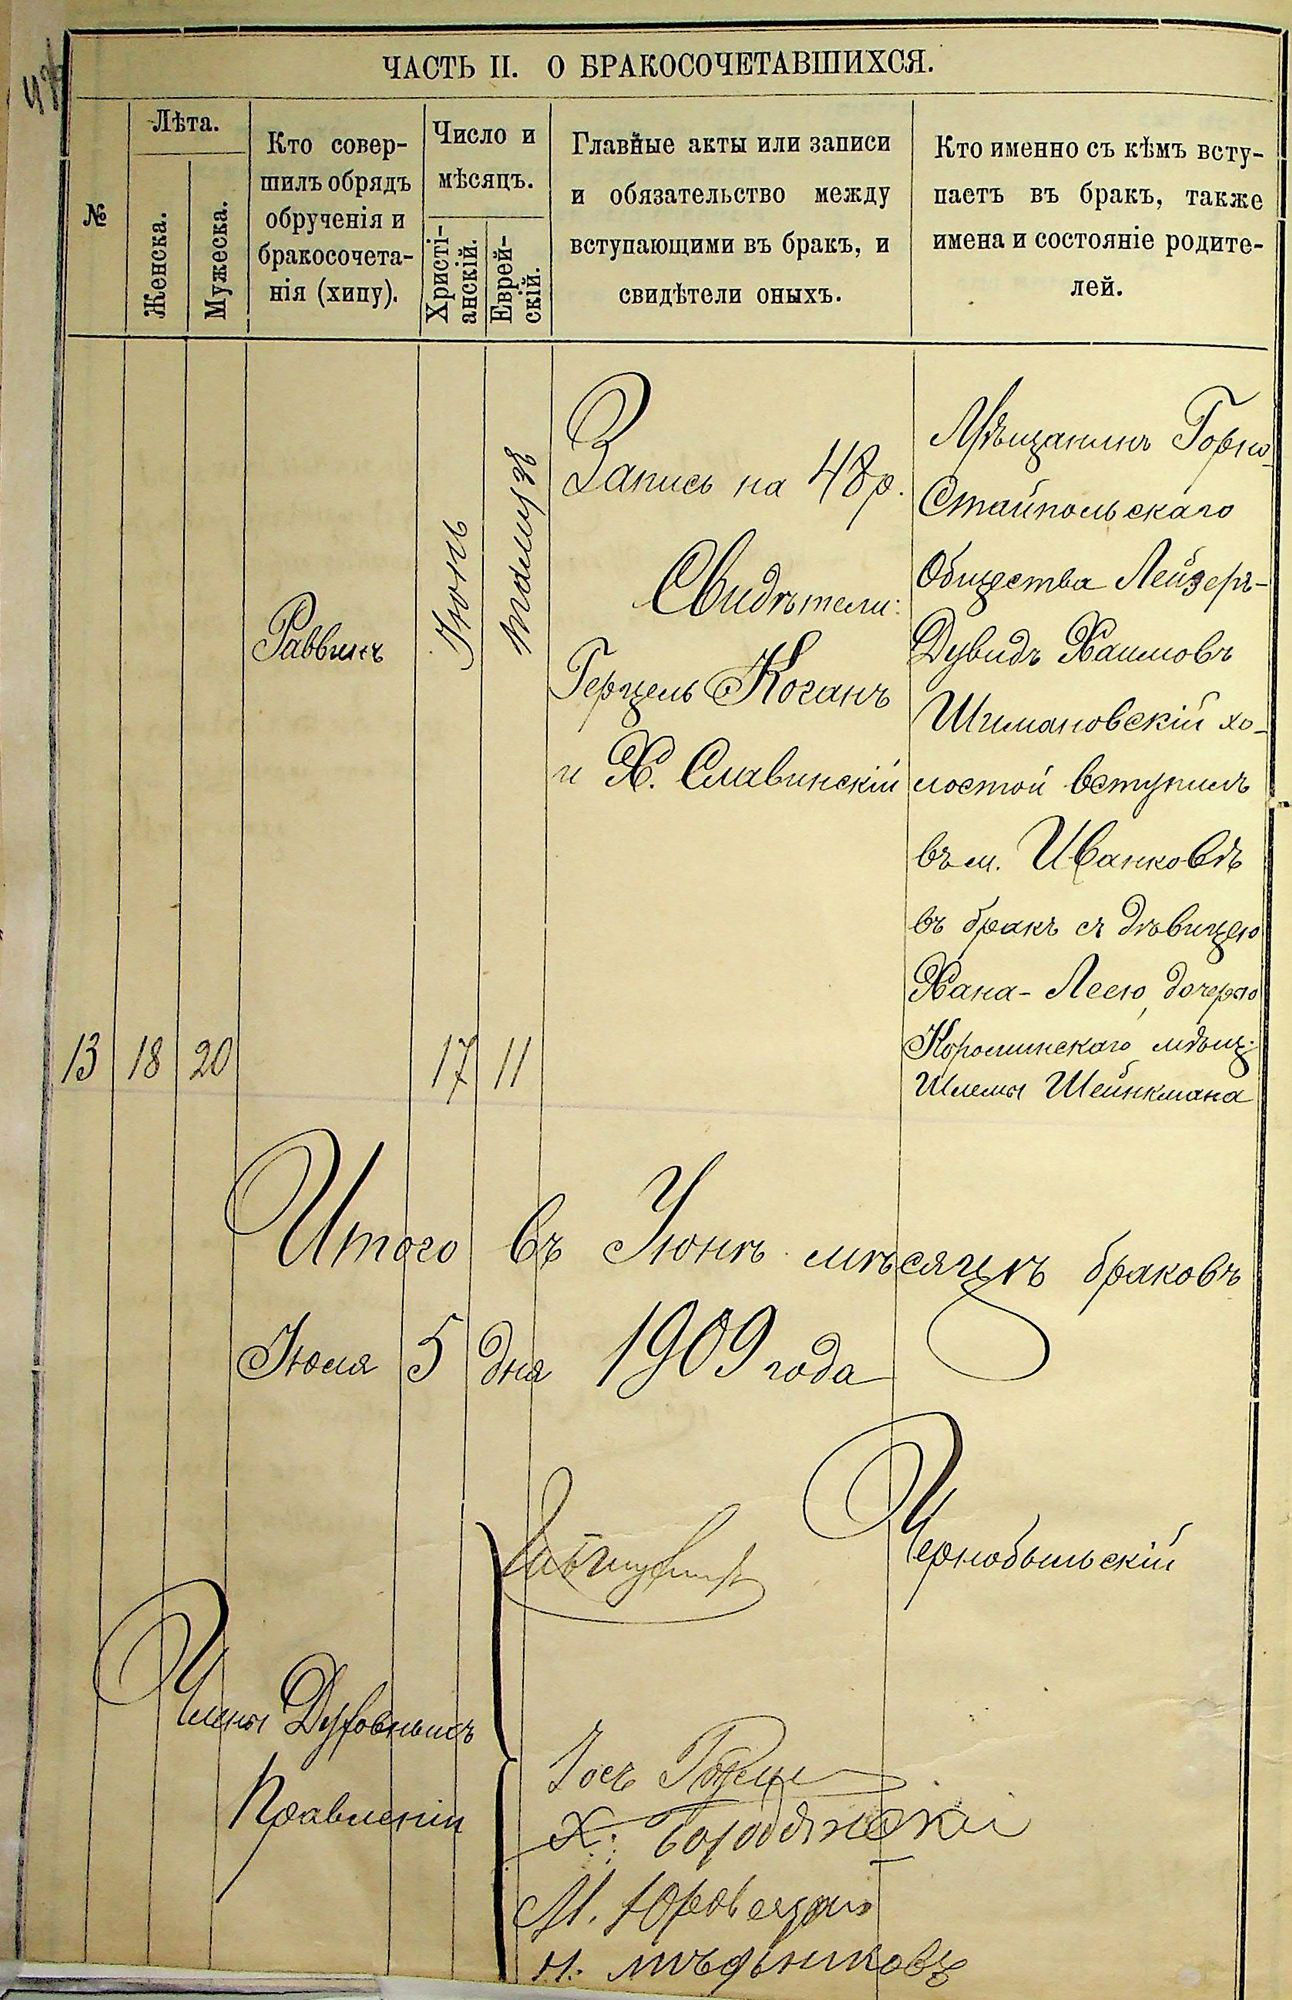 ЧАСТЬ II. О БРАКОСОЧЕТАВШИХСЯ.
№
Лѣта.
Женска.
Мужеска.
Кто совер-
шилъ обрядъ
обрученія и
бракосочета-
нія (хипу).
Число и
мѣсяцъ.
Христі-
анскій.
Еврей-
скій.
Главные акты или записи
и обязательство между
вступающими въ бракъ, и
свидѣтели оныхъ.
Кто именно съ кѣмъ всту-
паетъ въ бракъ, также
имена и состояніе родите-
лей.
13
18
20
Раввинъ
Іюнь
17
Тамузъ
11
Запись на 48 р.
Свидѣтели:
Герцель Коганъ
и Х. Славинскій
Мѣщанинъ Горно-
Стайпольскаго
Общества Лейзеръ-
Дувидъ Хаимовъ
Шимановскій хо-
лостой вступилъ
въ м. Иванковѣ
въ бракъ съ дѣвицею
Хана-Леею, дочерью
мѣщ.
Шлемы Шейнкмана
Итого въ Іюнѣ мѣсяцѣ браковъ
Іюля 5 дня 1909 года
Чернобыльскій
Члены Духовныхъ
Правленій
Іось
Х. Бородянскі
М. Юровецкий